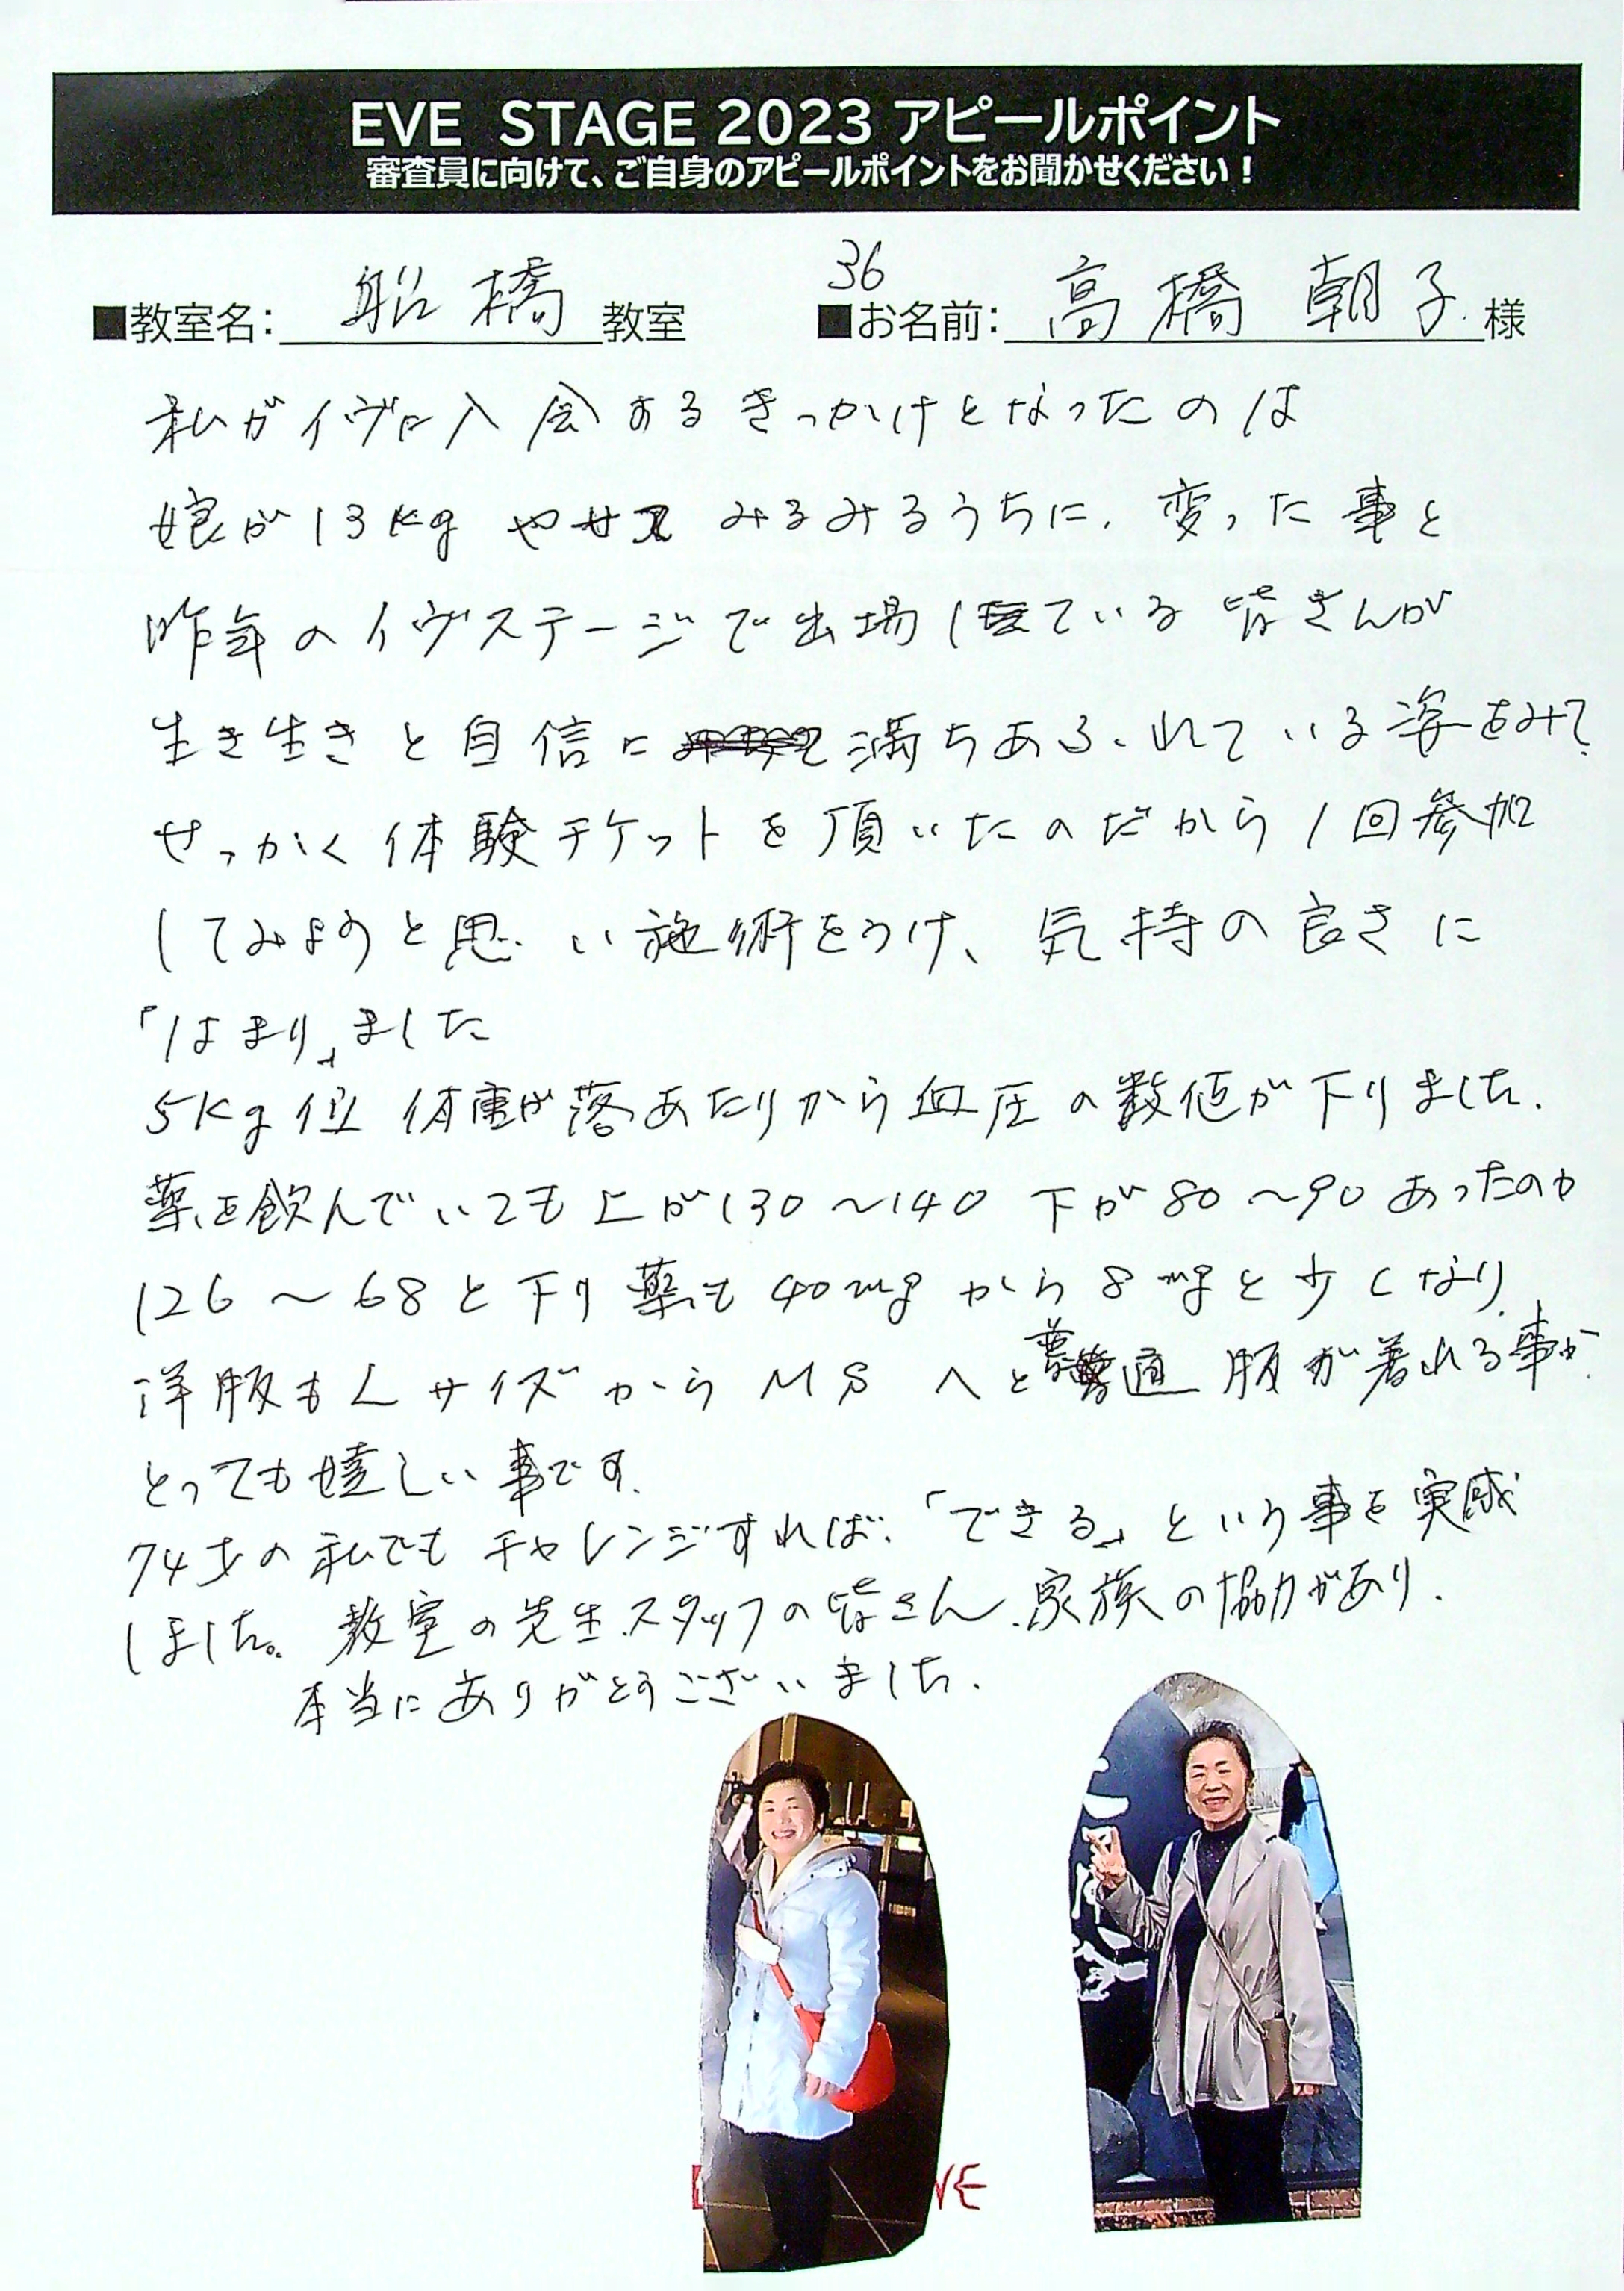 EVE STAGE 2023 アピールポイント
審査員に向けて、ご自身のアピールポイントをお聞かせください！
36
■教室名：船橋教室 ■お名前：高橋 朝子様
私がイヴに入会するきっかけとなったのは
娘が13kgやせて みるみるうちに、変った事と
昨年のイヴステージで出場している 皆さんが
生き生きと自信に満ちあふれている姿をみて、
せっかく体験チケットを頂いたのだから1回参加
してみようと思い施術をうけ、気持の良さに
「はまり」ました
5Kg位 体重が落あたりから血圧の数値が下りました。
薬を飲んでいても上が130〜140 下が80〜90あったのが
126〜68と下り薬も40mgから8mgと少くなり、
洋服もLサイズからMSへと普通服が着れる事が
とっても嬉しい事です。
74才の私でもチャレンジすれば、「できる」という事を実感
しました。教室の先生、スタッフの皆さん、家族の協力があり、
本当にありがとうございました。
VE